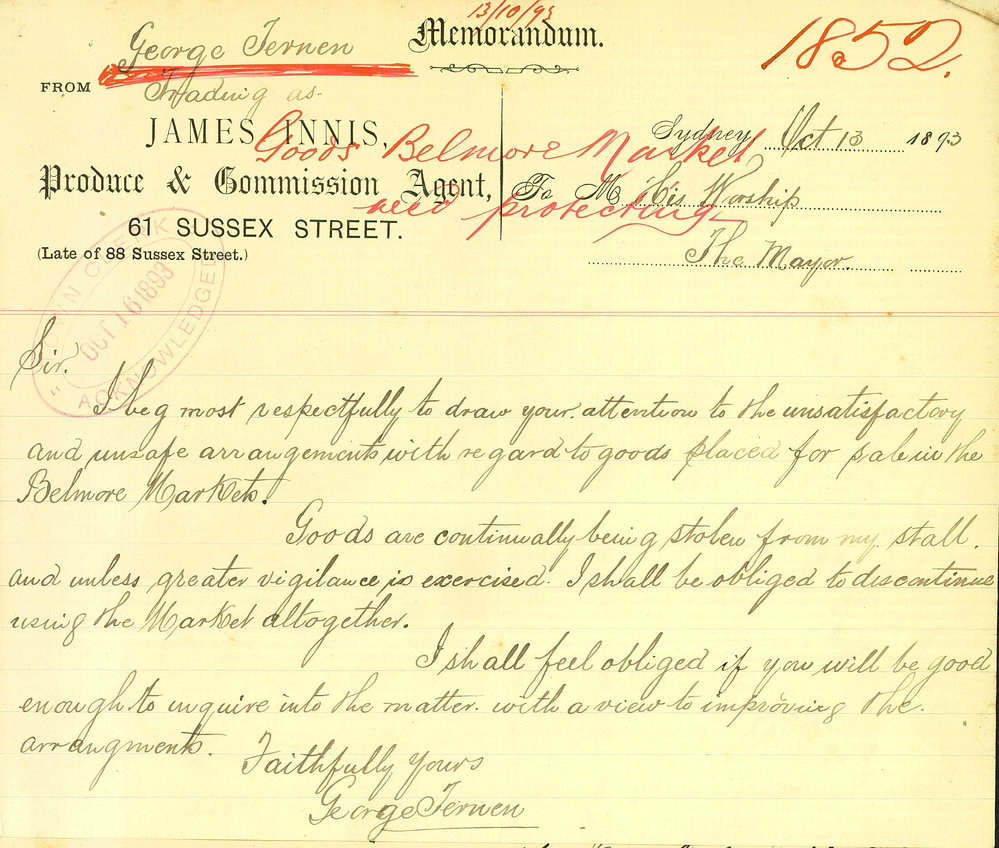 13/10/93
George Ternen
Memorandum.
1852.
FROM
Trading as.
JAMES INNIS,
Goods Belmore Market
Sydney Oct 13 1893
Produce & Commission Agent,
To M His Worship
need protecting
61 SUSSEX STREET.
(Late of 88 Sussex Street.)
The Mayor.
TOWN CLERK
OCT 16 1893
ACKNOWLEDGED
Sir.
I beg most respectfully to draw your attention to the unsatisfactory
and unsafe arrangements with regard to goods placed for sale in the
Belmore Markets.
Goods are continually being stolen from my stall.
and unless greater vigilance is exercised. I shall be obliged to discontinue
using the Market altogether.
I shall feel obliged if you will be good
enough to inquire into the matter. with a view to improving the.
arrangments.
Faithfully yours
George Ternen